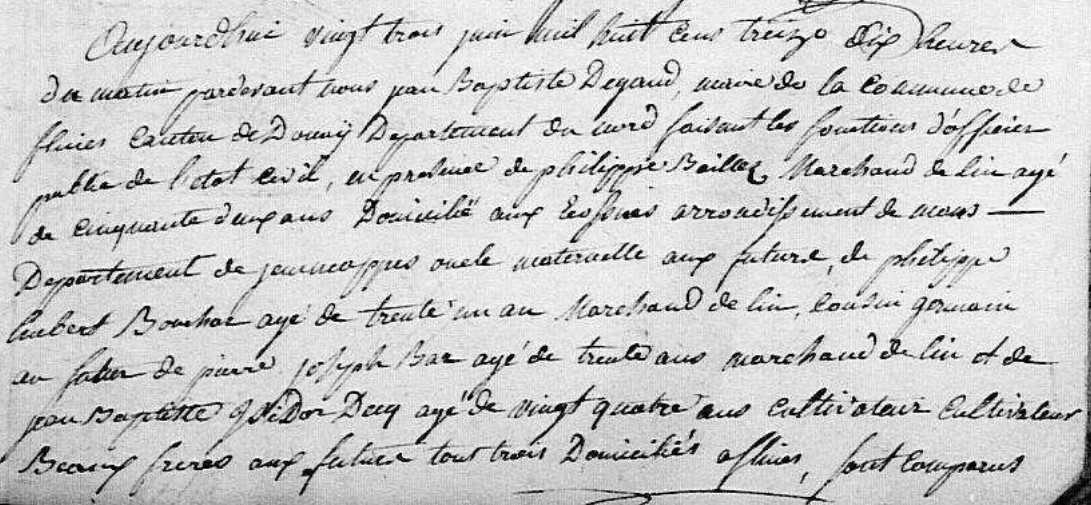 Aujourdhui vingt trois juin mil huit cens treize dix heures
du matin pardevant nous jean Baptiste Degand, maire de la commune de
flines Canton de Douay Departement du nord faisant les fonctions d'officier
public de l'etat civil, en presence de philippe Baillez Marchand de lin agé
de cinquante deux ans Domicilié aux arrondissement de mons —
Departement de jemmappes oncle maternelle aux future, de philippe
hubert Bouchar agé de trente un an Marchand de lin, cousin germain
au futur de pierre joseph Bar agé de trente ans marchand de lin et de
jean Baptiste Isidor agé de vingt quatre ans cultivateur cultivateur
Beaux freres aux future tout trois Domiciliés a flines, sont comparus